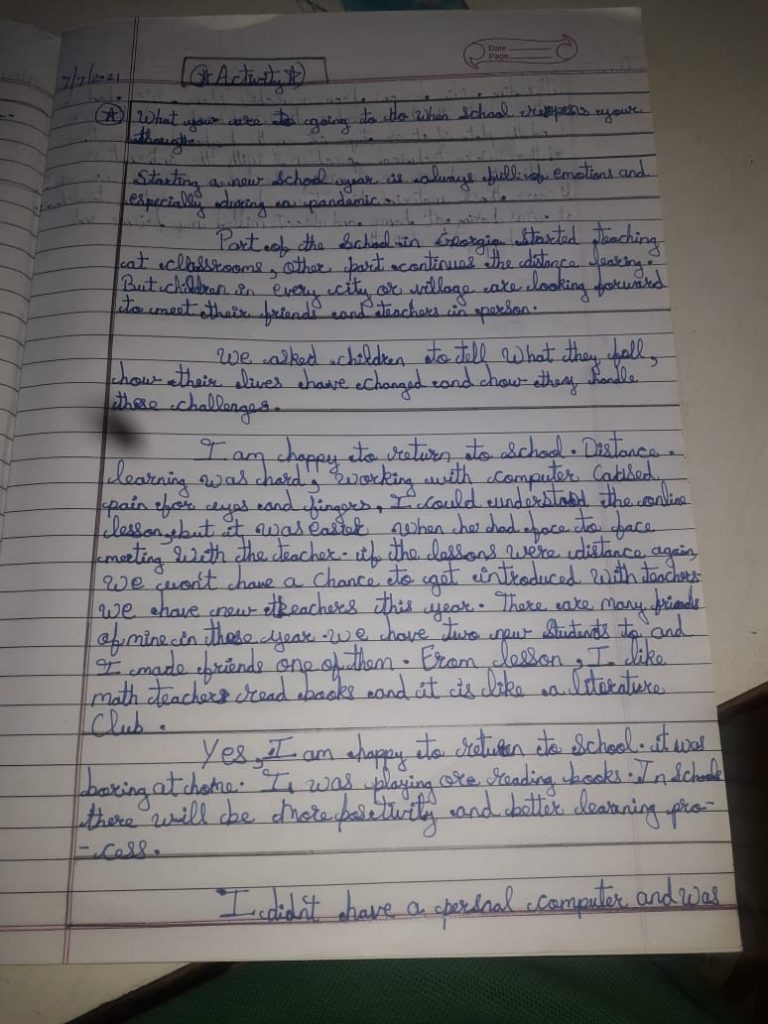 Date
Page
7/7/2021
☆ Activity ☆
(A) What your are to going to do when school reopens your
though.
Starting a new school year is always full of emotions and
especially during en pandemic.
Part of the School in Georgia Started teaching
at classrooms, other part continues the distance learing.
But children in every city or village are looking forward
to meet their friends and teachers in person.
We asked children to tell What they fall,
how their lives have changed and how they handle
these challenges.
I am happy to return to school. Distance
learning was hard, Working with computer Caused
pain for eyes and fingers, I could understood the online
lesson, but it was easier when he had face to face
meeting With the teacher. if the lessons were distance again,
We won't have a chance to get introduced With teachers
we have new teachers this year. There are many friends
of mine in these year. we have two new students to and
I made friends one of them. From lesson, I like
math teachers read books and it is like a literature
Club.
Yes, I am happy to return to School. it was
boring at home. I, was playing ore reading books. In School
there will be more positivity and better learning pro-
-cess.
I didn't have a persnal computer and was